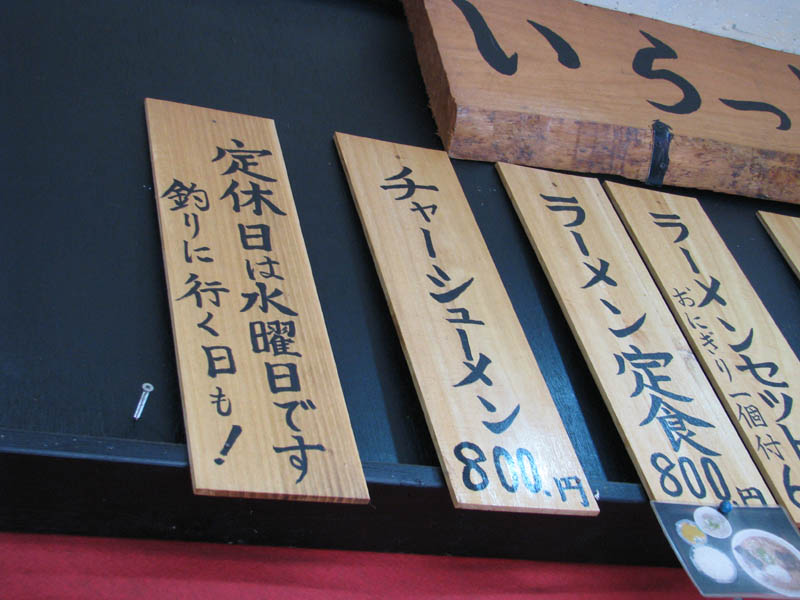 いらっ
定休日は水曜日です
釣りに行く日も!
チャーシューメン
800.円
ラーメン定食
800.円
ラーメンセット
おにぎり一個付